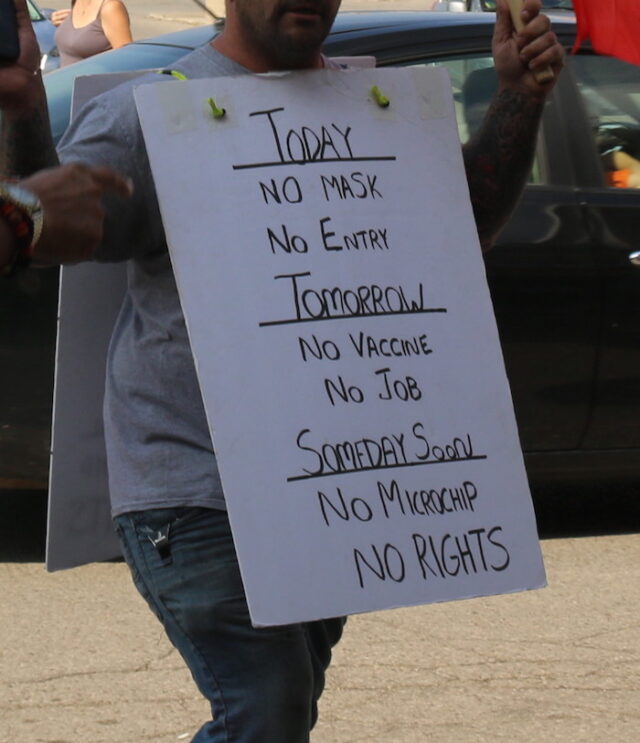 TODAY
NO MASK
NO ENTRY
TOMORROW
NO VACCINE
NO JOB
SOMEDAY SOON
NO MICROCHIP
NO RIGHTS